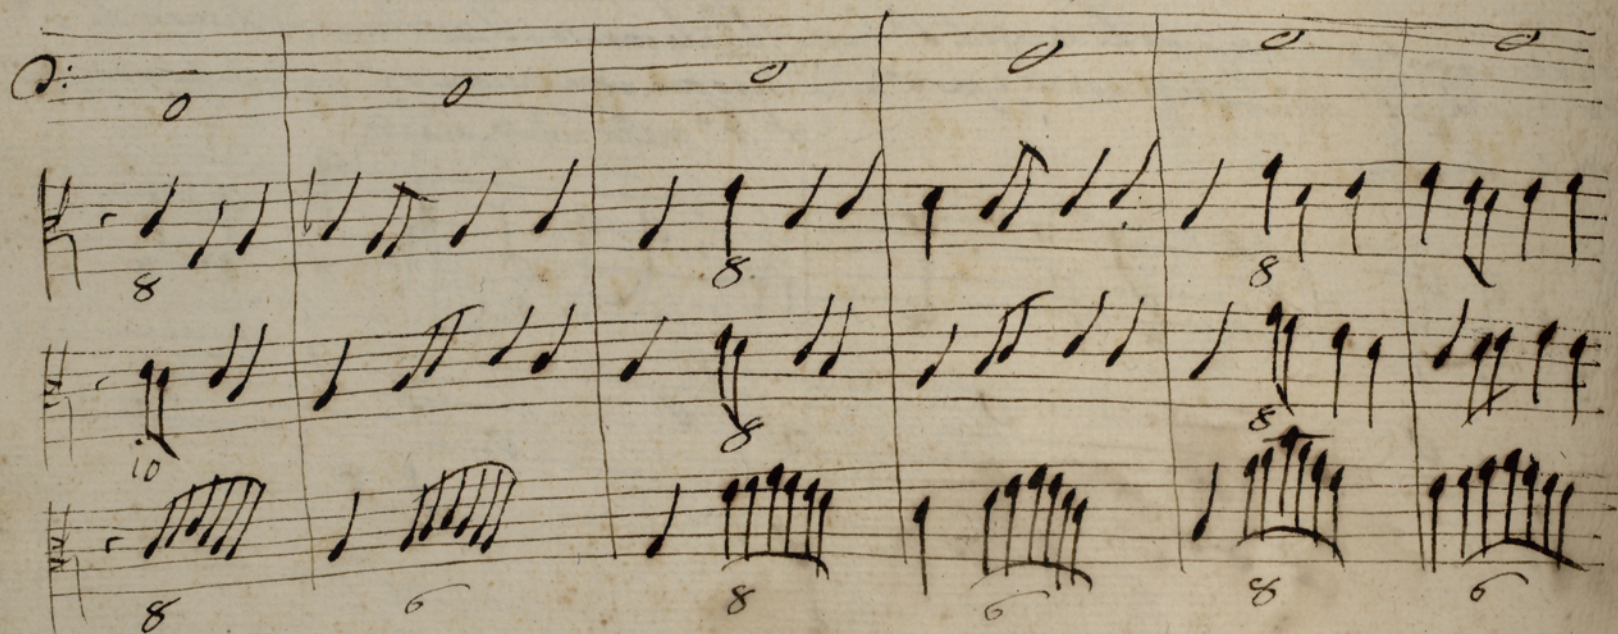 8 8 8
10 8 8
8 6 8 6 8 6